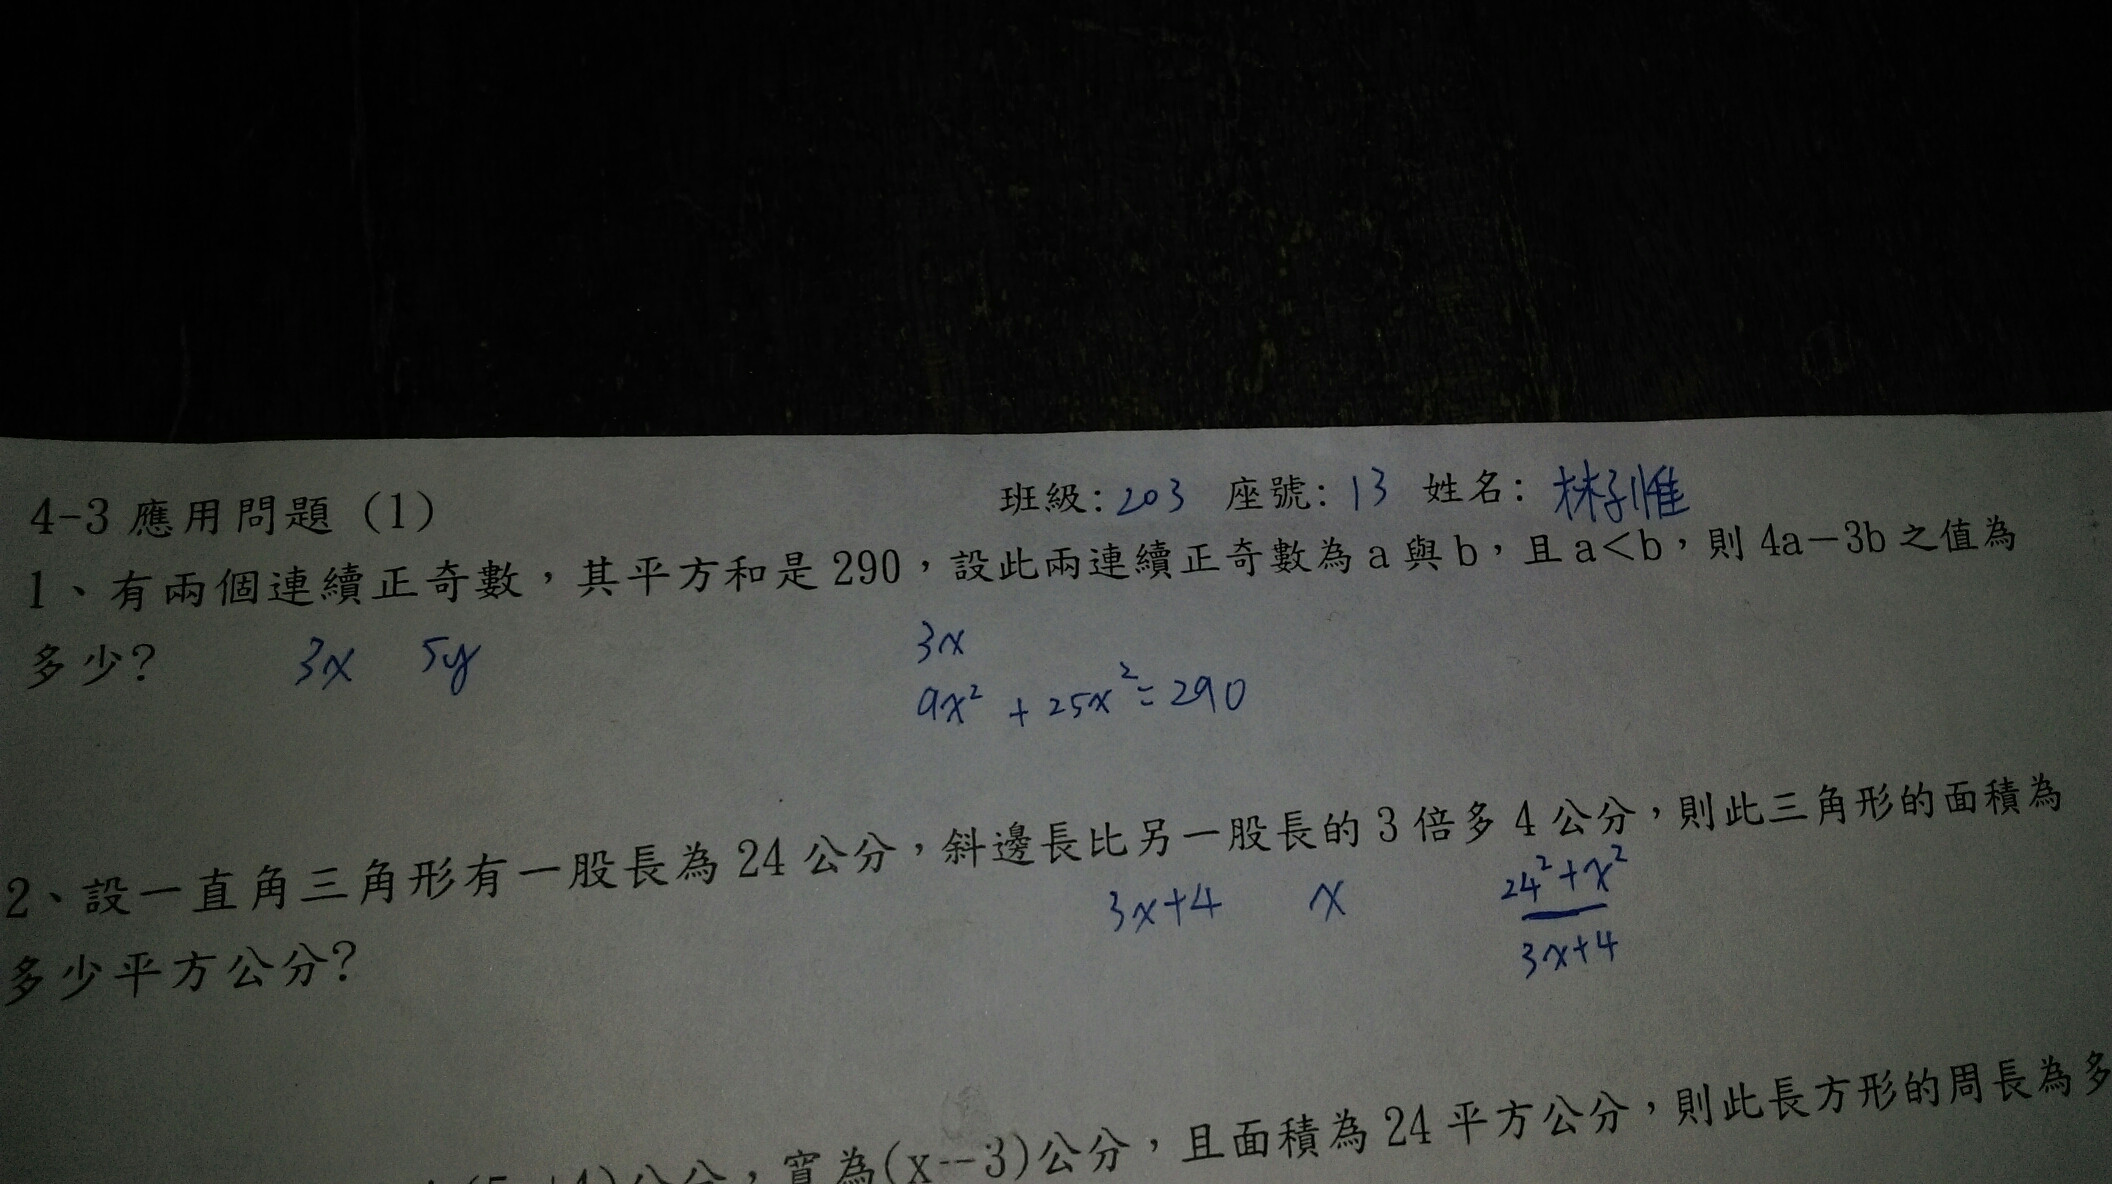 4-3 應用問題 (1) 班級: 203 座號: 13 姓名: 林子惟
1、有兩個連續正奇數，其平方和是 290，設此兩連續正奇數為 a 與 b，且 a<b，則 4a-3b 之值為
多少?
3x 5y
3x
9x² + 25x² = 290
2、設一直角三角形有一股長為 24 公分，斜邊長比另一股長的 3 倍多 4 公分，則此三角形的面積為
多少平方公分?
3x+4 x 24²+x²
3x+4
寬為(x--3)公分，且面積為 24 平方公分，則此長方形的周長為多